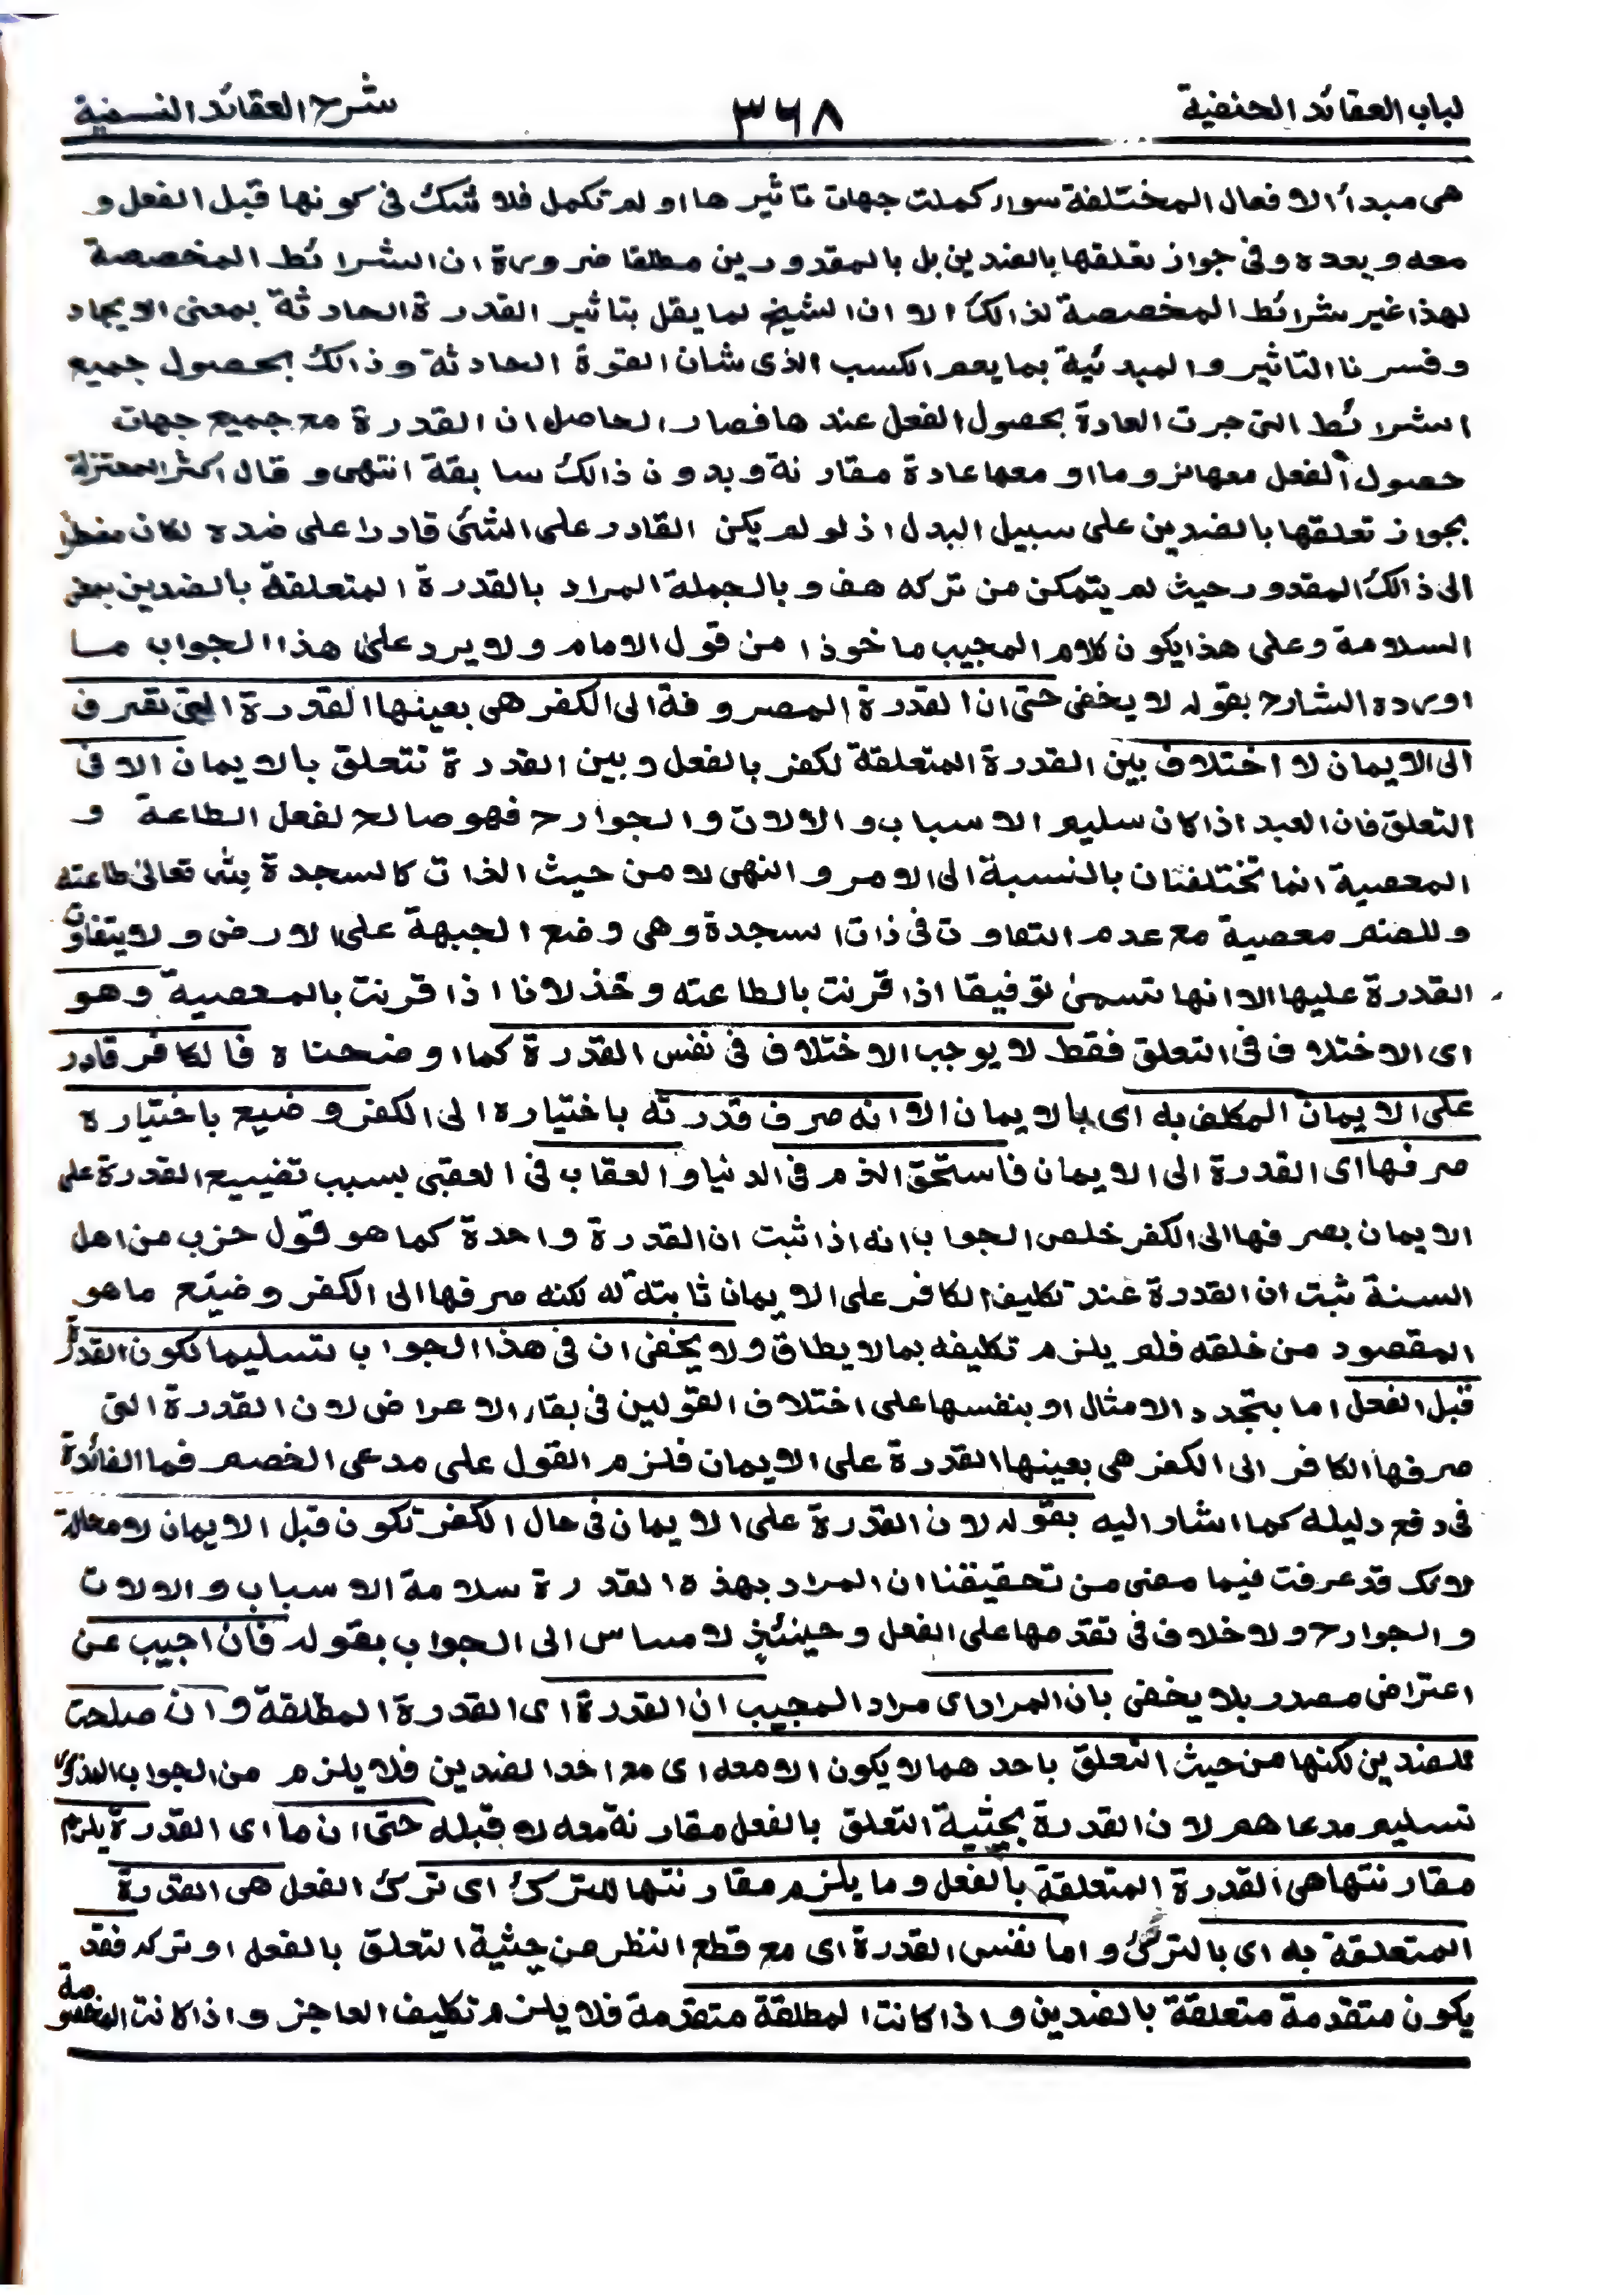 لباب العقائد الحنفية ٣٦٨ شرح العقائد النسفية
هى مبدأ الافعال المختلفة سواء كملت جهات تاثيرها او لم تكمل فلا شك فى كونها قبل الفعل و
معه وبعده وفى جواز تعلقها بالضدين بل بالمقدورين مطلقا ضرورة ان الشرائط المخصصة
لهذا غير شرائط المخصصة لذالك الا ان الشيخ لما يقل بتاثير القدرة الحادثة بمعنى الايجاد
وفسرنا التاثير والمبدئية بما يعم الكسب الذى شان القوة الحادثة وذالك بحصول جميع
الشرائط التى جرت العادة بحصول الفعل عندها فصار الحاصل ان القدرة مع جميع جهات
حصول الفعل معها لزوما او معها عادة مقارنة وبدون ذالك سابقة انتهى و قال اكثر المعتزلة
بجواز تعلقها بالضدين على سبيل البدل اذ لو لم يكن القادر على الشئ قادرا على ضده لكان مضطر
الى ذالك المقدور حيث لم يتمكن من تركه هف و بالجملة المراد بالقدرة المتعلقة بالضدين بمعنى
السلامة وعلى هذا يكون كلام المجيب ماخوذا من قول الامام ولا يرد على هذا الجواب ما
اورده الشارح بقوله لا يخفى حتى ان القدرة المصروفة الى الكفر هى بعينها القدرة التى تصرف
الى الايمان لا اختلاف بين القدرة المتعلقة لكفر بالفعل وبين القدرة تتعلق بالايمان الا فى
التعلق فان العبد اذا كان سليم الاسباب والالات والجوارح فهو صالح لفعل الطاعة و
المعصية انما تختلفان بالنسبة الى الامر والنهى لا من حيث الذات كالسجدة لله تعالى طاعته
وللصنم معصية مع عدم التفاوت فى ذات السجدة وهى وضع الجبهة على الارض ولا يتفاوت
القدرة عليها الا انها تسمى توفيقا اذا قرنت بالطاعته وخذلانا اذا قرنت بالمعصية وهو
اى الاختلاف فى التعلق فقط لا يوجب الاختلاف فى نفس القدرة كما اوضحناه فالكافر قادر
على الايمان المكلف به اى بالايمان الا انه صرف قدرته باختياره الى الكفر وضيع باختياره
صرفها اى القدرة الى الايمان فاستحق الذم فى الدنيا و العقاب فى العقبى بسبب تضييع القدرة على
الايمان بصرفها الى الكفر خلص الجواب انه اذا ثبت ان القدرة واحدة كما هو قول حزب من اهل
السنة ثبت ان القدرة عند تكليف الكافر على الايمان ثابتة له لكنه صرفها الى الكفر وضيّع ماهو
المقصود من خلقه فلم يلزم تكليفه بما لا يطاق ولا يخفى ان فى هذا الجواب تسليما لكون القدرة
قبل الفعل اما بتجدد الامثال او بنفسها على اختلاف القولين فى بقاء الاعراض لان القدرة التى
صرفها الكافر الى الكفر هى بعينها القدرة على الايمان فلزم القول على مدعى الخصم فما الفائدة
فى دفع دليله كما اشار اليه بقوله لان القدرة على الايمان فى حال الكفر تكون قبل الايمان لا محالة
لانك قد عرفت فيما مضى من تحقيقنا ان المراد بهذه القدرة سلامة الاسباب والالات
والجوارح ولا خلاف فى تقدمها على الفعل وحينئذٍ لا مساس الى الجواب بقوله فان اجيب عن
اعتراض مصدر بلا يخفى بان المراد اى مراد المجيب ان القدرة اى القدرة المطلقة وان صلحت
للضدين لكنها من حيث التعلق باحدهما لا يكون الا معه اى مع احد الضدين فلا يلزم من الجواب المذكور
تسليم مدعاهم لان القدرة بحيثية التعلق بالفعل مقارنة معه لا قبله حتى ان ما اى القدرة يلزم
مقارنتها هى القدرة المتعلقة بالفعل وما يلزم مقارنتها للترك اى ترك الفعل هى القدرة
المتعلقة به اى بالترك واما نفس القدرة اى مع قطع النظر من حيثية التعلق بالفعل او تركه فقد
يكون متقدمة متعلقة بالضدين واذا كانت المطلقة متقدمة فلا يلزم تكليف العاجز واذا كانت المخصوصة